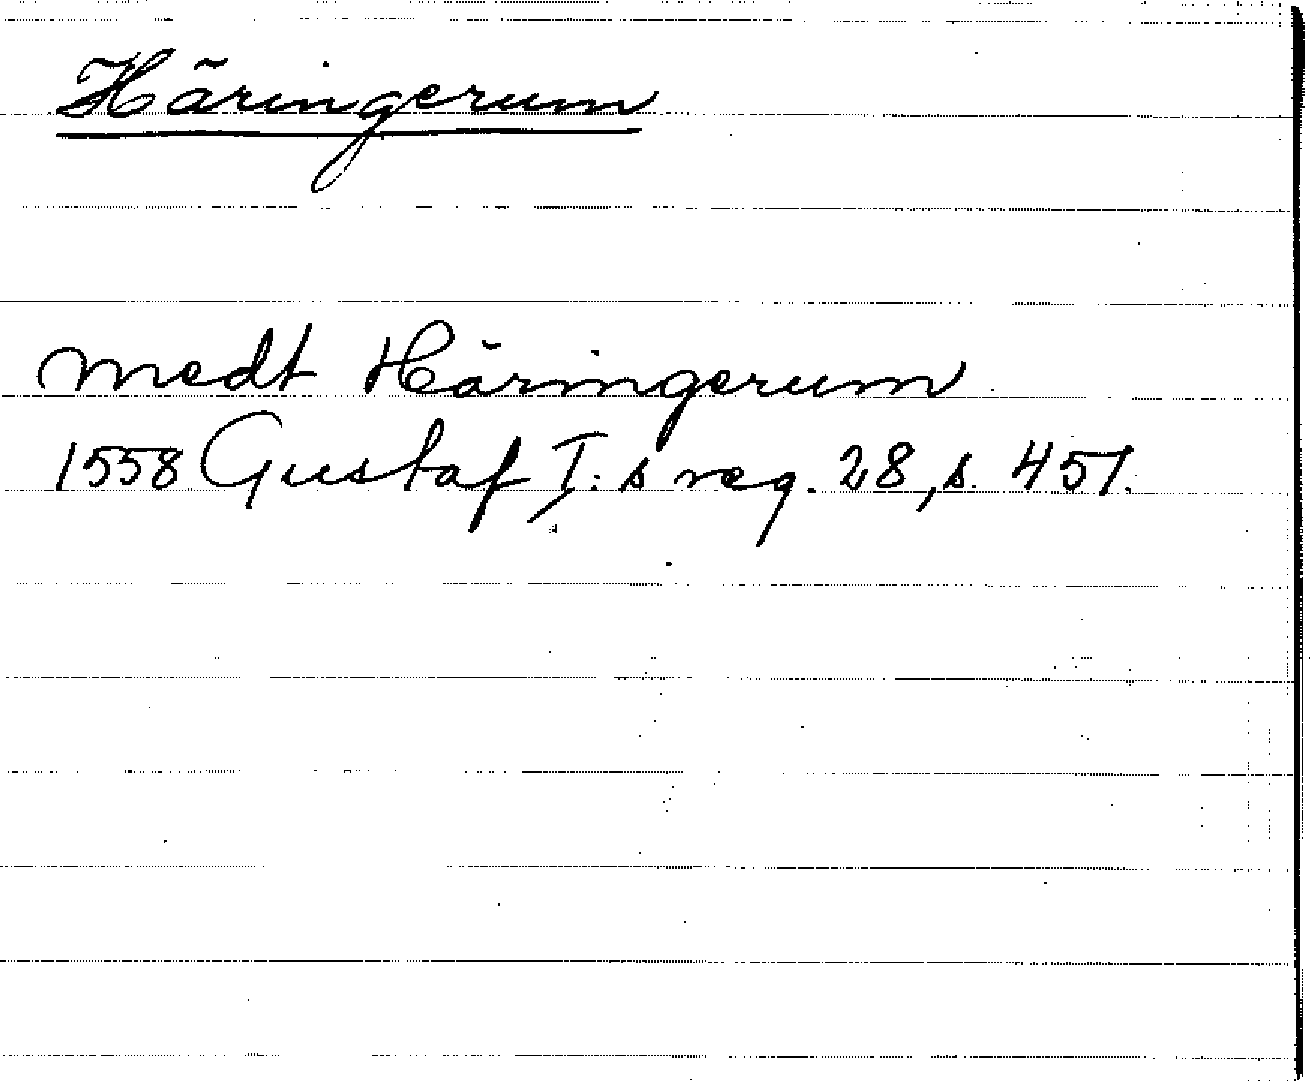 Häringerum
medt Häringerum
1558 Gustaf I:s reg. 28, s. 451.